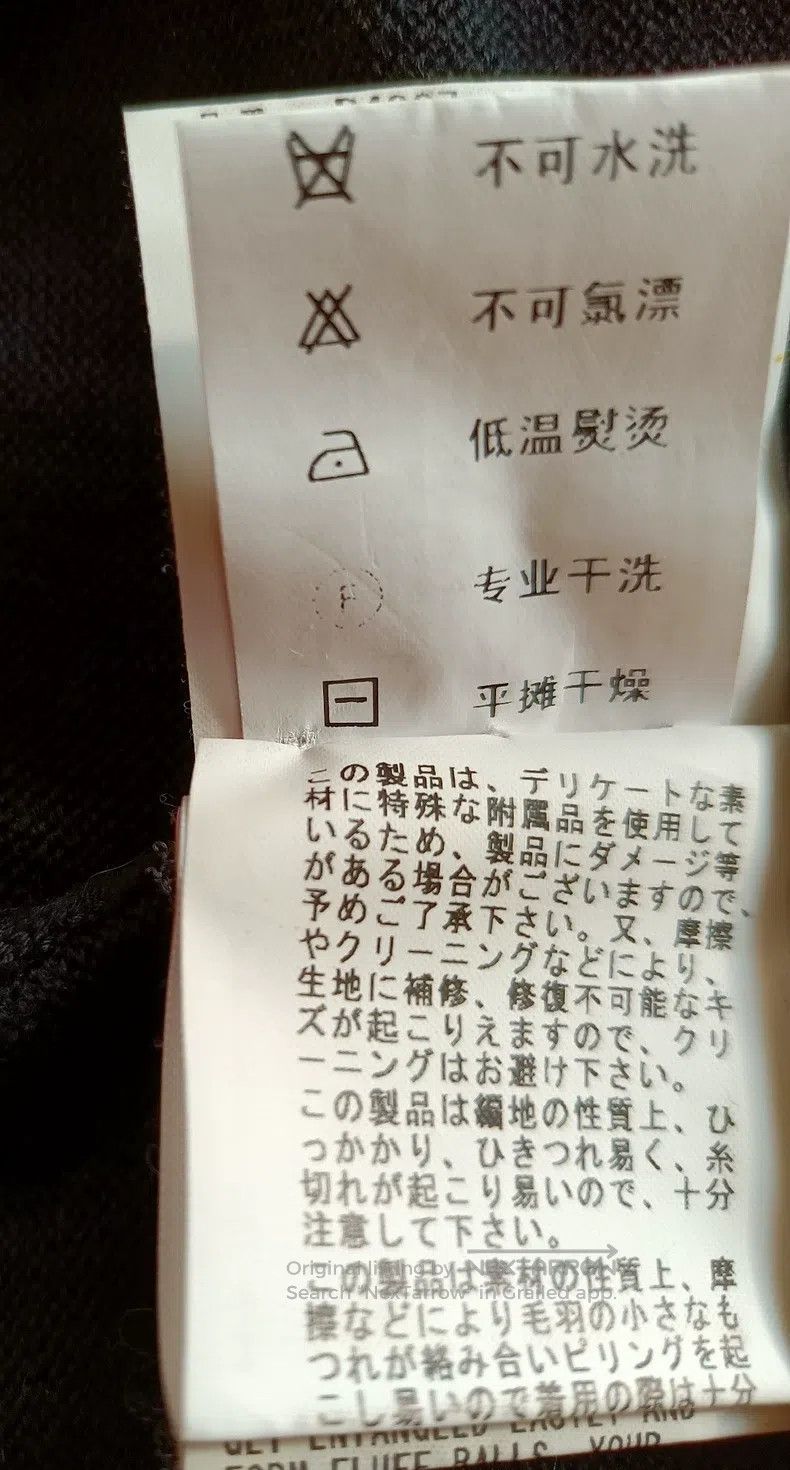 不可水洗
不可氯漂
低温熨烫
F
专业干洗
平摊干燥
この製品は、デリケートな素
材に特殊な附属品を使用して
いるため、製品にダメージ等
がある場合がございますので、
予めご了承下さい。又、摩擦
やクリーニングなどにより、
生地に補修、修復不可能なキ
ズが起こりえますので、クリ
ーニングはお避け下さい。
この製品は編地の性質上、ひ
っかかり、ひきつれ易く、糸
切れが起こり易いので、十分
注意して下さい。
この製品は素材の性質上、摩
擦などにより毛羽の小さなも
つれが絡み合いピリングを起
こし易いので着用の際は十分
Original listing by NEXTARROW
Search "NexTarrow" in Grailed app.
GET ENTANGLED EASILY AND
FORM FLUFF BALLS. YOUR